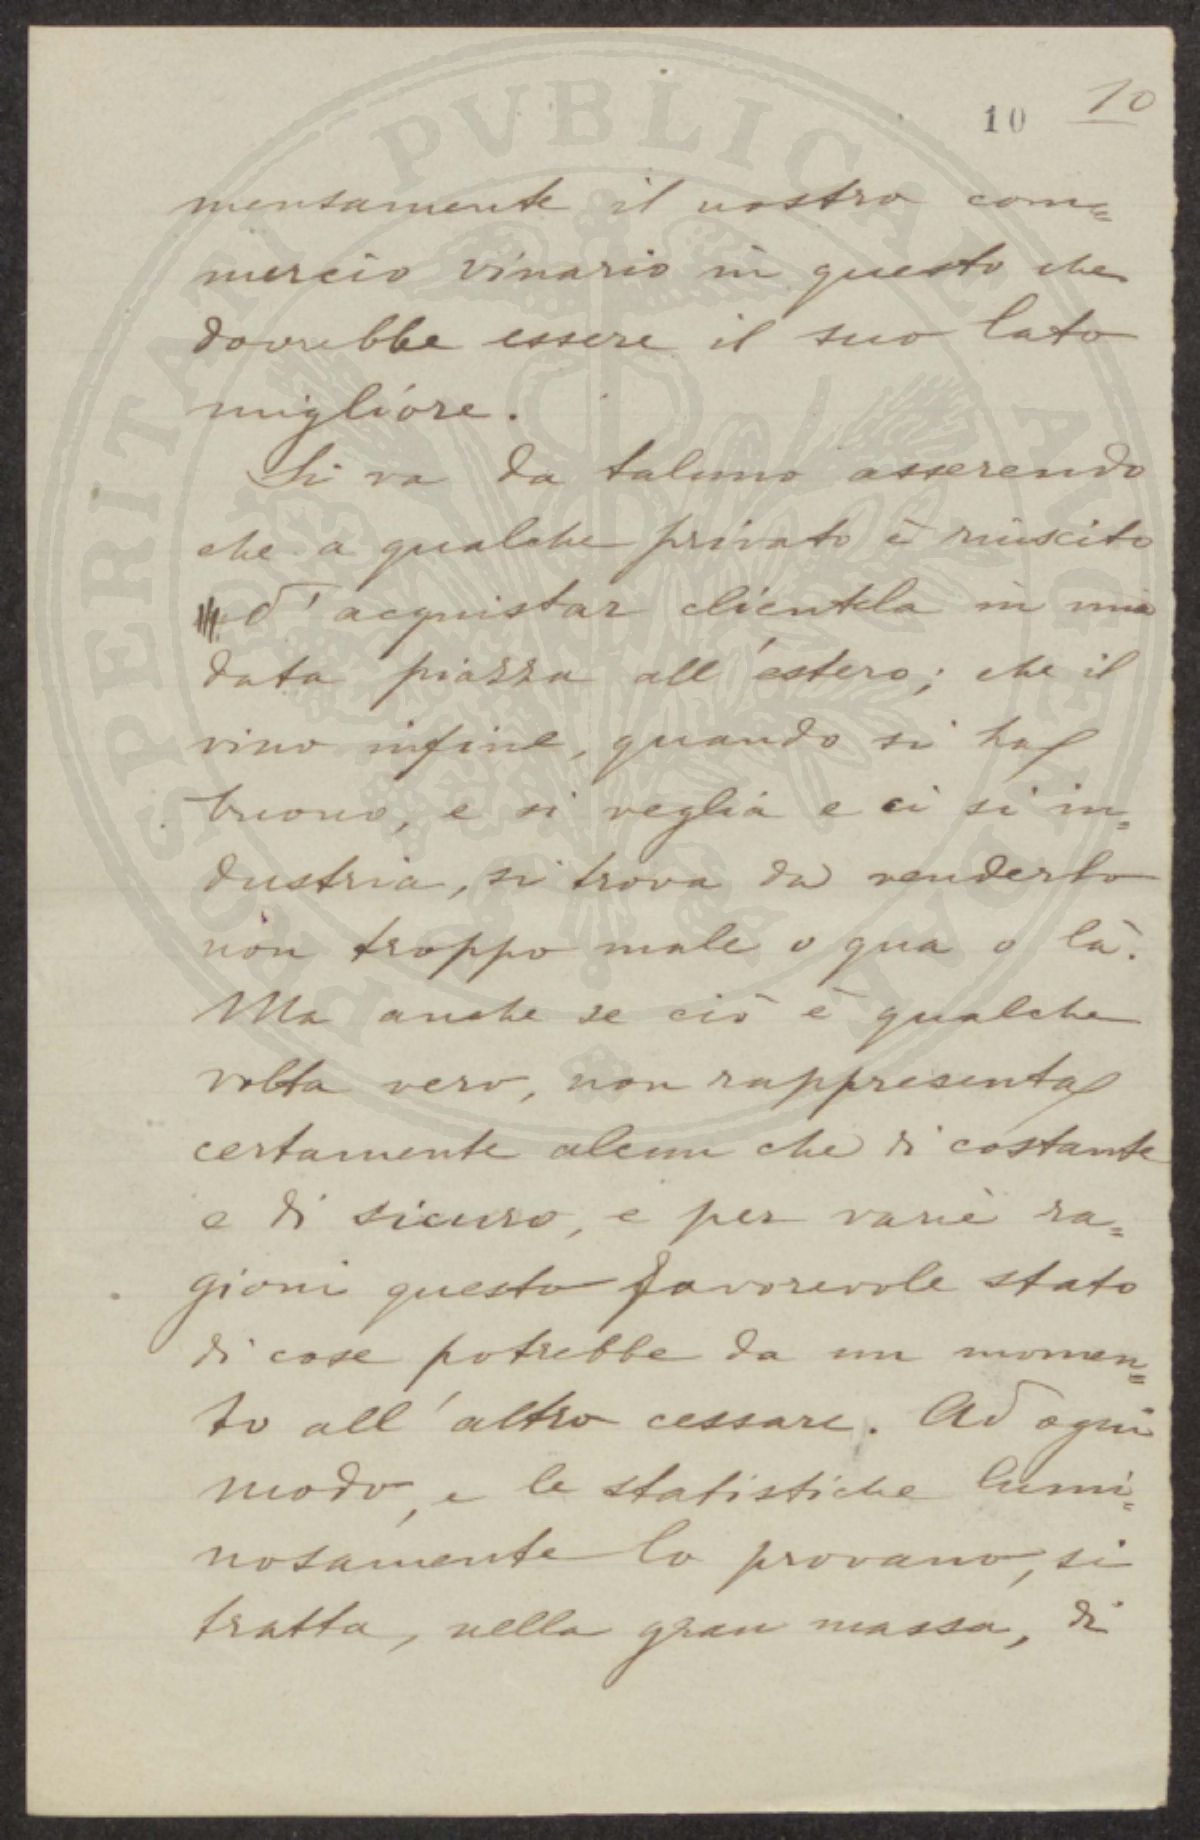 10 10
mensamente il nostro com=
mercio vinario in questo che
dovrebbe essere il suo lato
migliore.
Si va da taluno asserendo
che a qualche privato è riuscito
d'acquistar clientela in una
data piazza all'estero; che il
vino infine, quando si ha
buono, e si veglia e ci si in=
dustria, si trova da venderlo
non troppo male o qua o là.
Ma anche se ciò è qualche
volta vero, non rappresenta
certamente alcun che di costante
e di sicuro, e per varie ra=
gioni questo favorevole stato
di cose potrebbe da un momen=
to all'altro cessare. Ad ogni
modo, e le statistiche lumi=
nosamente lo provano, si
tratta, nella gran massa, di
PUBLICAE
PROSPERITATI
AVGENDAE